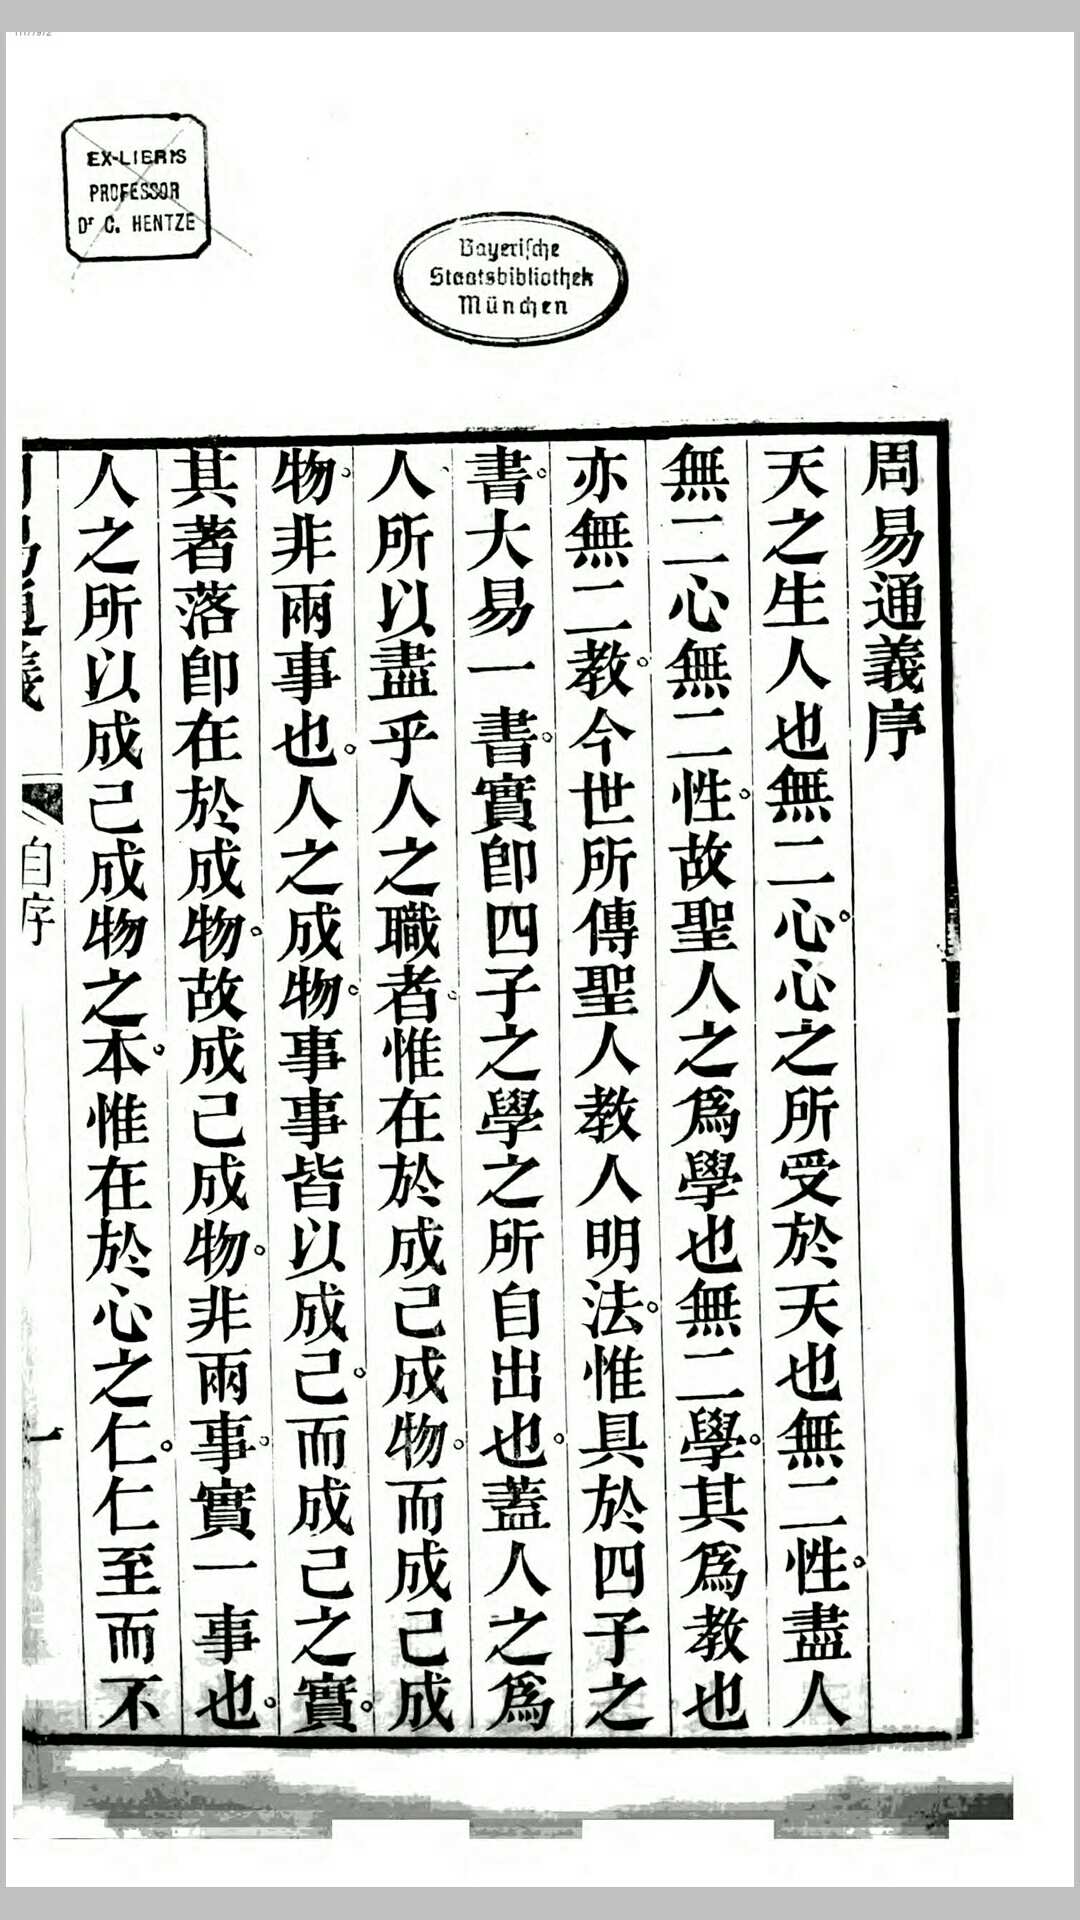 EX-LIBRIS
PROFESSOR
Dr C. HENTZE
Bayerische
Staatsbibliothek
München
周易通義序
天之生人也無二心心之所受於天也無二性盡人
無二心無二性故聖人之爲學也無二學其爲教也
亦無二教今世所傳聖人教人明法惟具於四子之
書大易一書實卽四子之學之所自出也蓋人之爲
人所以盡乎人之職者惟在於成己成物而成己成
物非兩事也人之成物事事皆以成己而成己之實
其著落卽在於成物故成己成物非兩事實一事也
人之所以成己成物之本惟在於心之仁仁至而不
周易通義
自序
一